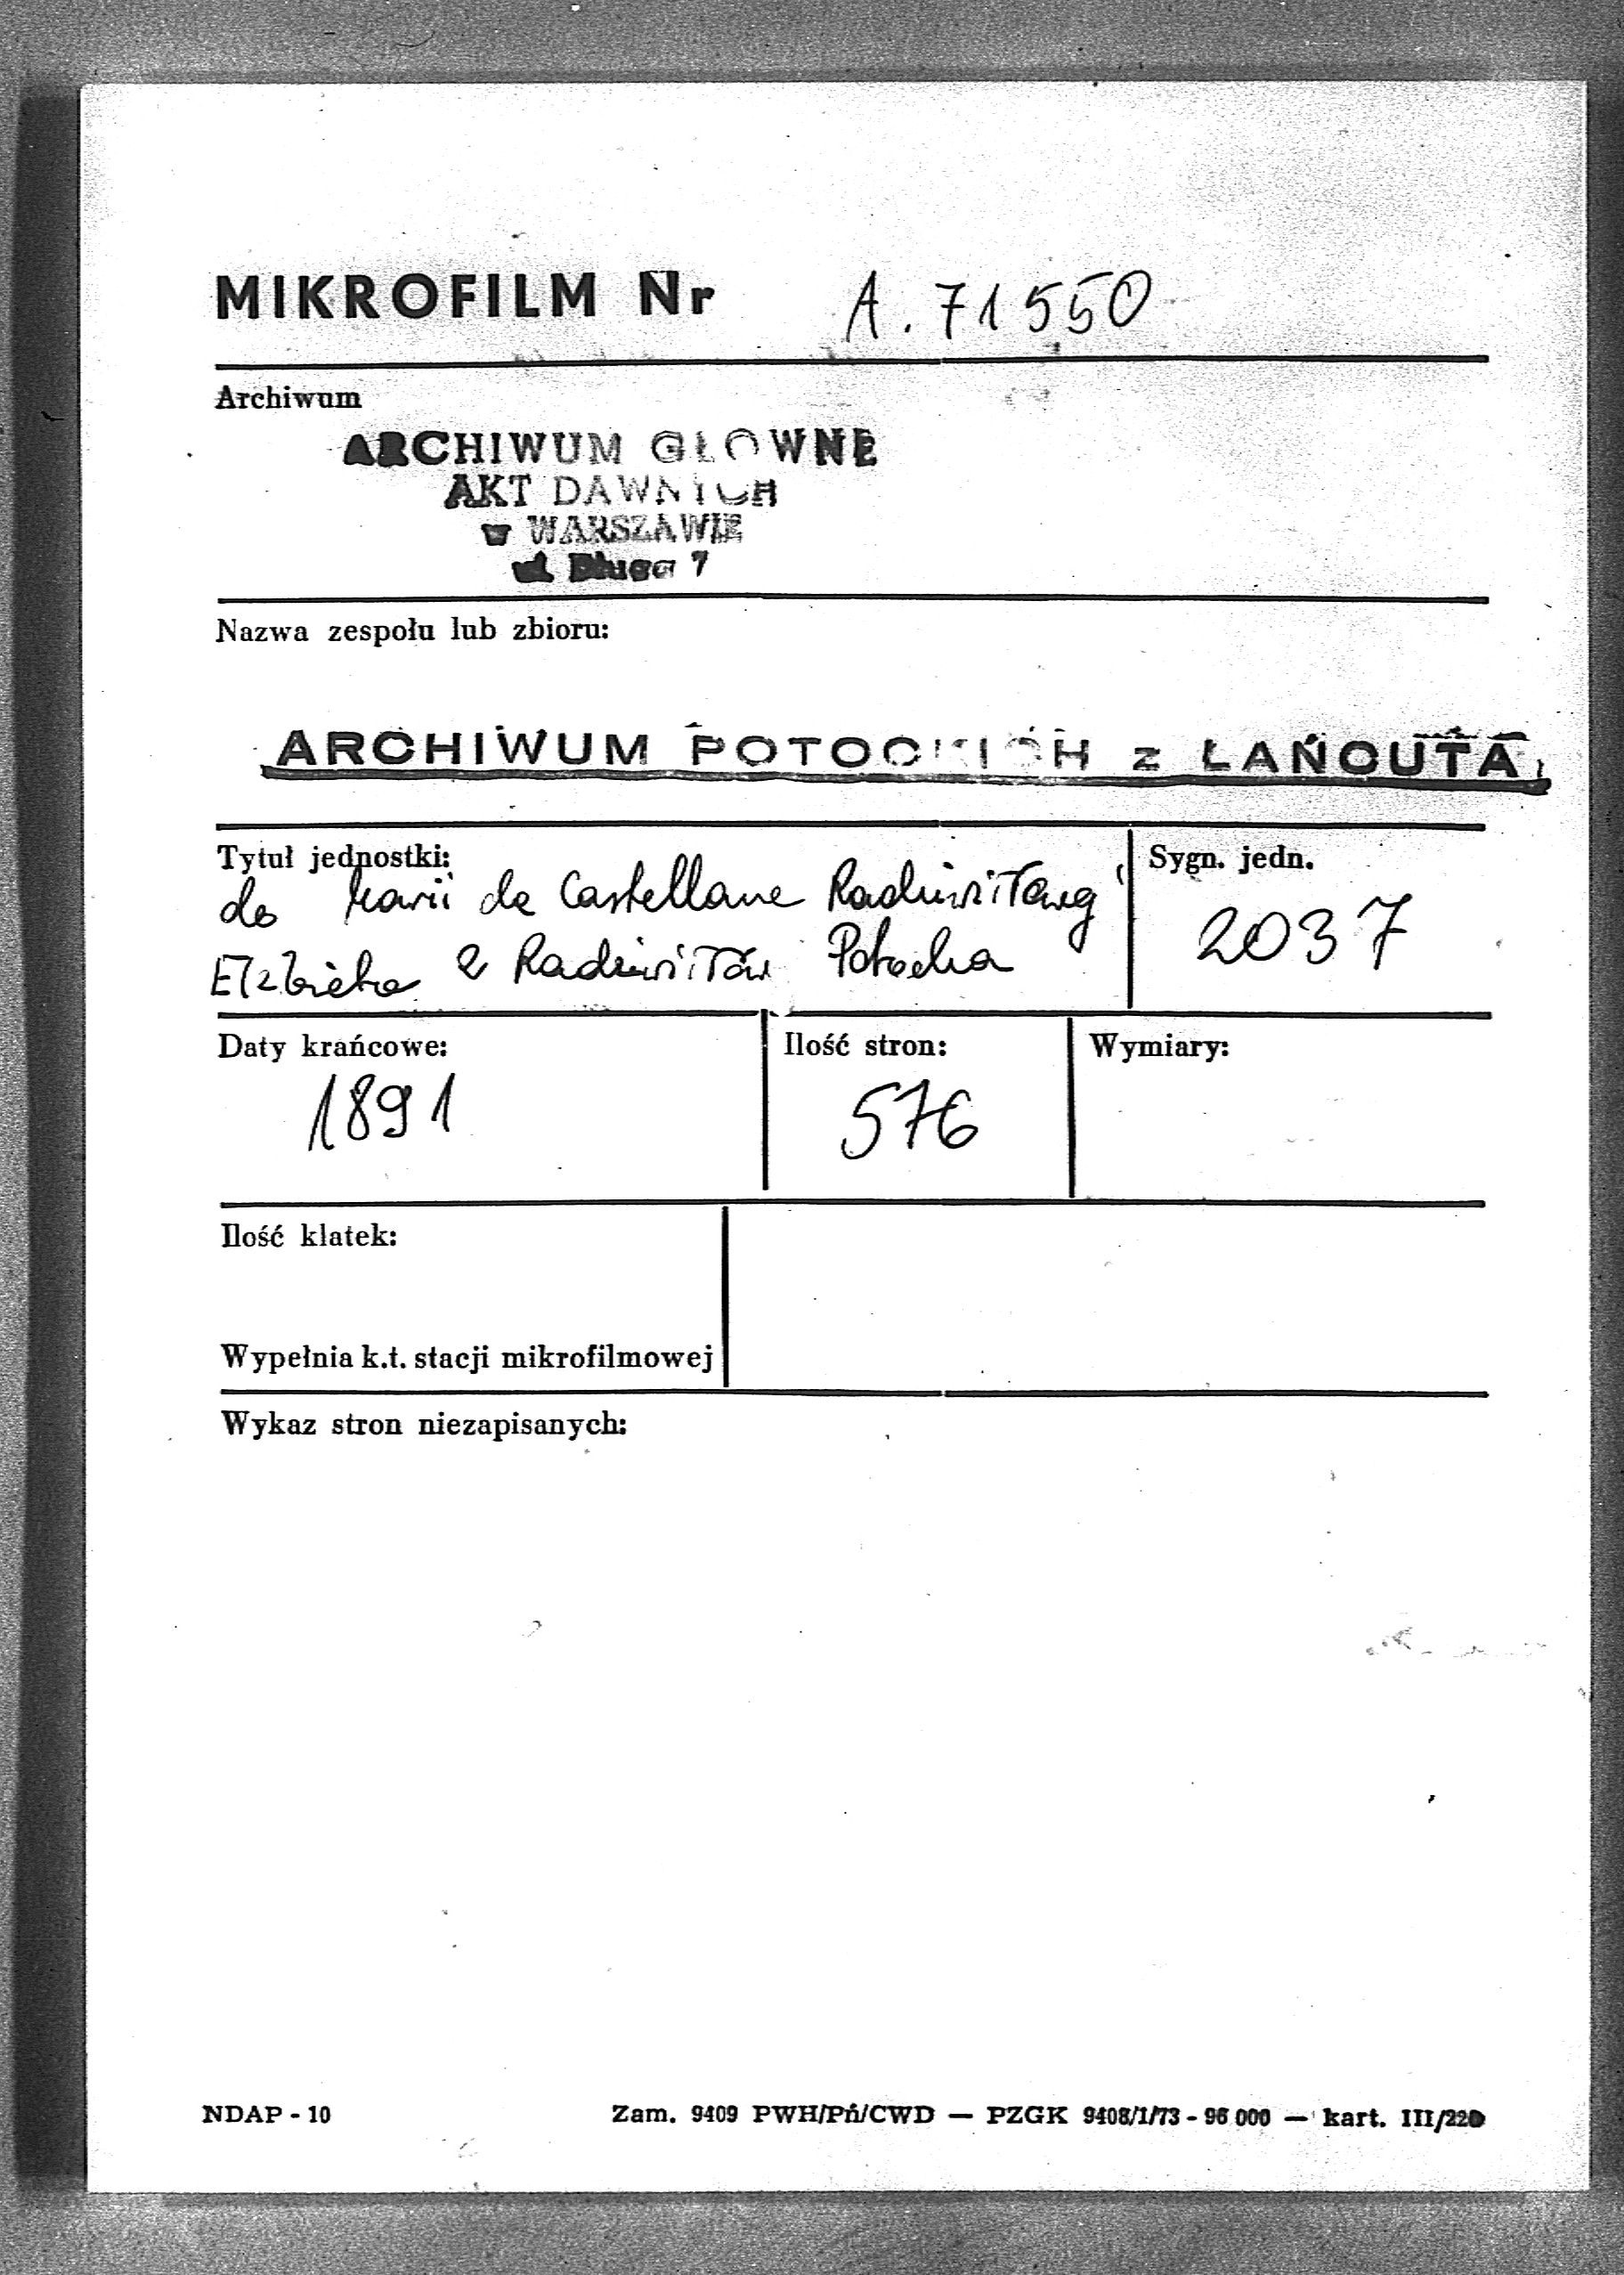 MIKROFILM Nr A. 71550
Archiwum
ARCHIWUM GŁOWNE
AKT DAWNYCH
w WARSZAWIE
ul Długa 7
Nazwa zespołu lub zbioru:
ARCHIWUM POTOCKICH z ŁAŃCUTA
Tytuł jednostki:
do Marii de Castellane Radziwiłłowej
Elżbieta z Radziwiłłów Potocka
Sygn. jedn.
2037
Daty krańcowe:
1891
Ilość stron:
576
Wymiary:
Ilość klatek:
Wypełnia k.t. stacji mikrofilmowej
Wykaz stron niezapisanych:
NDAP - 10
Zam. 9409 PWH/Pń/CWD — PZGK 9408/1/73 - 96 000 — kart. III/220